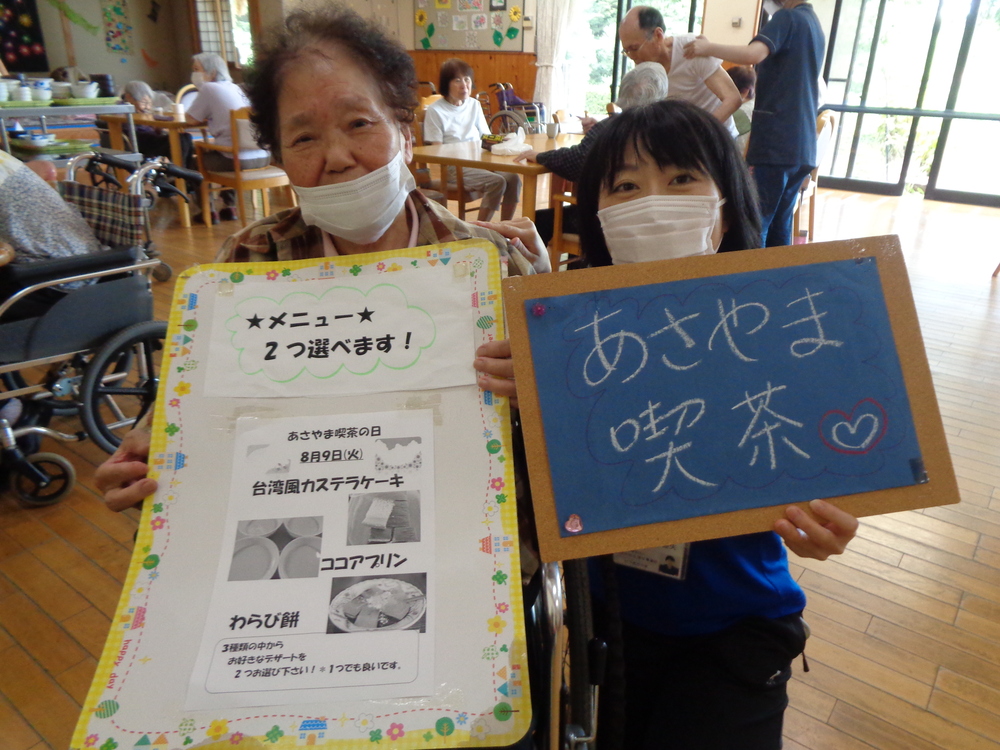 ★メニュー★
2つ選べます!
あさやま喫茶の日
8月9日(火)
台湾風カステラケーキ
ココアプリン
わらび餅
3種類の中から
お好きなデザートを
2つお選び下さい!＊1つでも良いです。
happy day
あさやま
喫茶